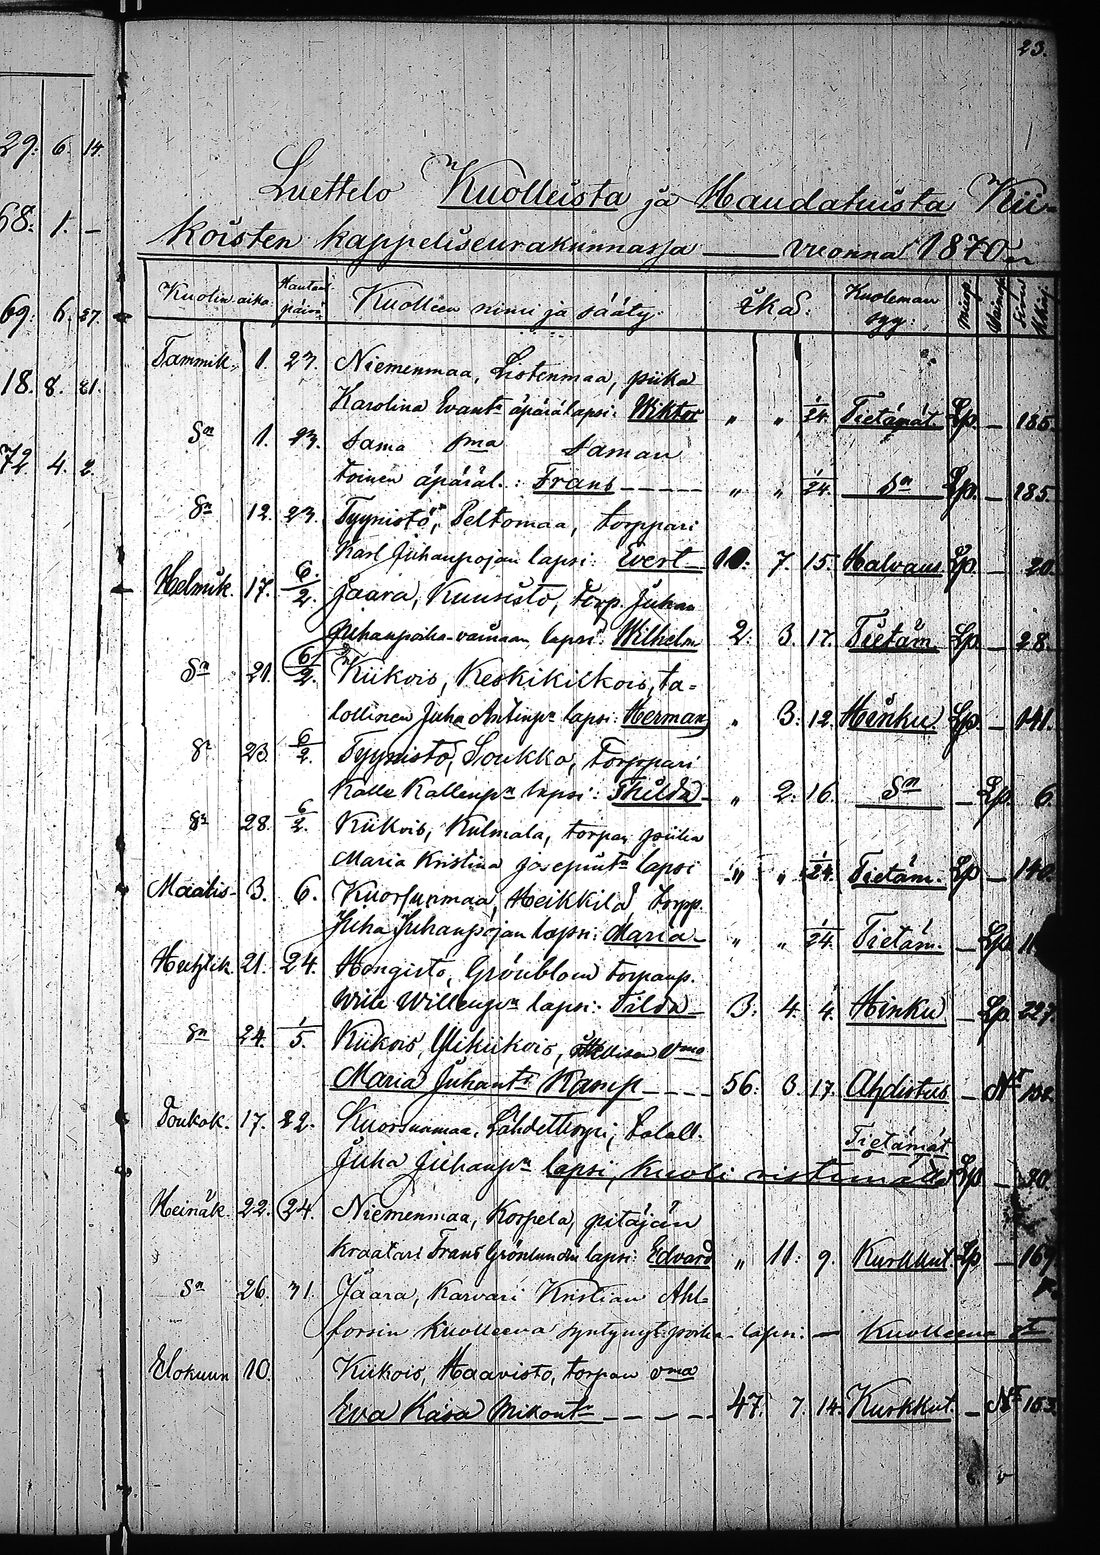 23.
29. 6. 14.
68. 1. —
69. 6. 27.
18. 8. 21.
72 4. 2.
Luettelo Kuolleista ja Haudatuista Kii-
koisten kappeliseurakunnassa — vuonna 1870
Kuolin aika Hautau päivä Kuolleen nimi ja sääty. ikä. Kuoleman syy.
Tammik. 1. 23. Niemenmaa, piika
Karolina Evantr äpärälapsi: Wiktor „ „ 1/24. Tietämät. Lp. — 185.
Sn 1. 23. Sama vma saman
toinen äpäräl.: Frans — „ „ 1/24. Sn Lp. — 185.
Sn 12. 23. Tyynistö, Peltomaa, torppari
Karl Juhanpojan lapsi: Evert — 10. 7. 15. Halvaus Lp. — 20.
Helmik. 17. 6/2. Jaara, Kuusisto, torp. Juhan
Juhanpoika-vainaan lapsi: Wilhelm 2. 3. 17. Tietäm. Lp. — 28.
Sn 21. 6/2. Kiikois, Keskikiikois, ta-
lollinen Juha Antinpn lapsi: Herman „ 3. 12. Hinku Lp. — 141.
Sn 23. 6/2. Tyynistö, Soukko, Torppari
Kalle Kallenpn lapsi: Thilda — „ 2. 16. Sn — Lp. 6.
Sn 28. 6/2. Kiikois, Kulmala, torpan piika
Maria Kristina Josepintr lapsi „ „ 1/24. Tietäm. Lp — 140.
Maalis- 3. 6. Kuorsunmaa, Heikkilä torpp.
Juha Juhanpojan lapsi: Maria — „ „ 1/24. Tietäm. — Lp.
Huhtik. 21. 24. Hongisto, Grönblom torpanp.
Wille Willenpn lapsi: Tilda — 3. 4. 4. Hinku — Lp. 227.
Sn 24. 1/5. Kiikois, Ylikiikois, vma
Maria Juhantr Kamp — 56. 3. 17. Ahdistus — Nt 132.
Toukok. 17. 22. Kuorsunmaa, Lähdettorpi, taloll.
Tietämät.
Juha Juhanpn lapsi, kuoli ristimätä Lp — 20.
Heinäk. 22. 24. Niemenmaa, Korpela, pitäjän
kraatari Frans Grönlundin lapsi: Edvard „ 11. 9. Kurkkut. Lp — 169.
Sn 26. 31. Jaara, Karvari Kristian Ahl-
forsin kuolleena syntynyt poika-lapsi. — Kuolleena st.
Elokuun 10. Kiikois, Haavisto, torpan vma
Eva Kaisa Mikontr — 47. 7. 14. Kurkkut. — Nt 153.